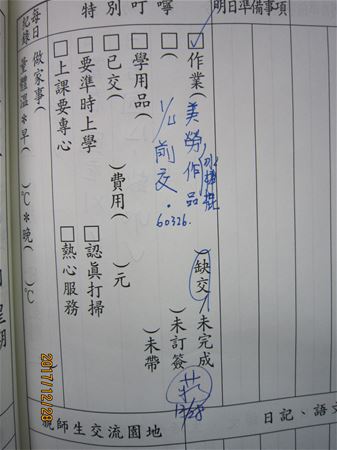 明日準備事項
特別叮嚀
每日記錄
☑作業(美勞作品)缺交/未完成
60326.
□( )未訂簽
1/2前交.
□學用品( )未帶
□已交( )費用( )元
□要準時上學 □認真打掃
□上課要專心 □熱心服務
做家事( )
量體溫*早( )℃*晚( )℃
莊
12/28
親師生交流園地
日記、語文
2017/12/28